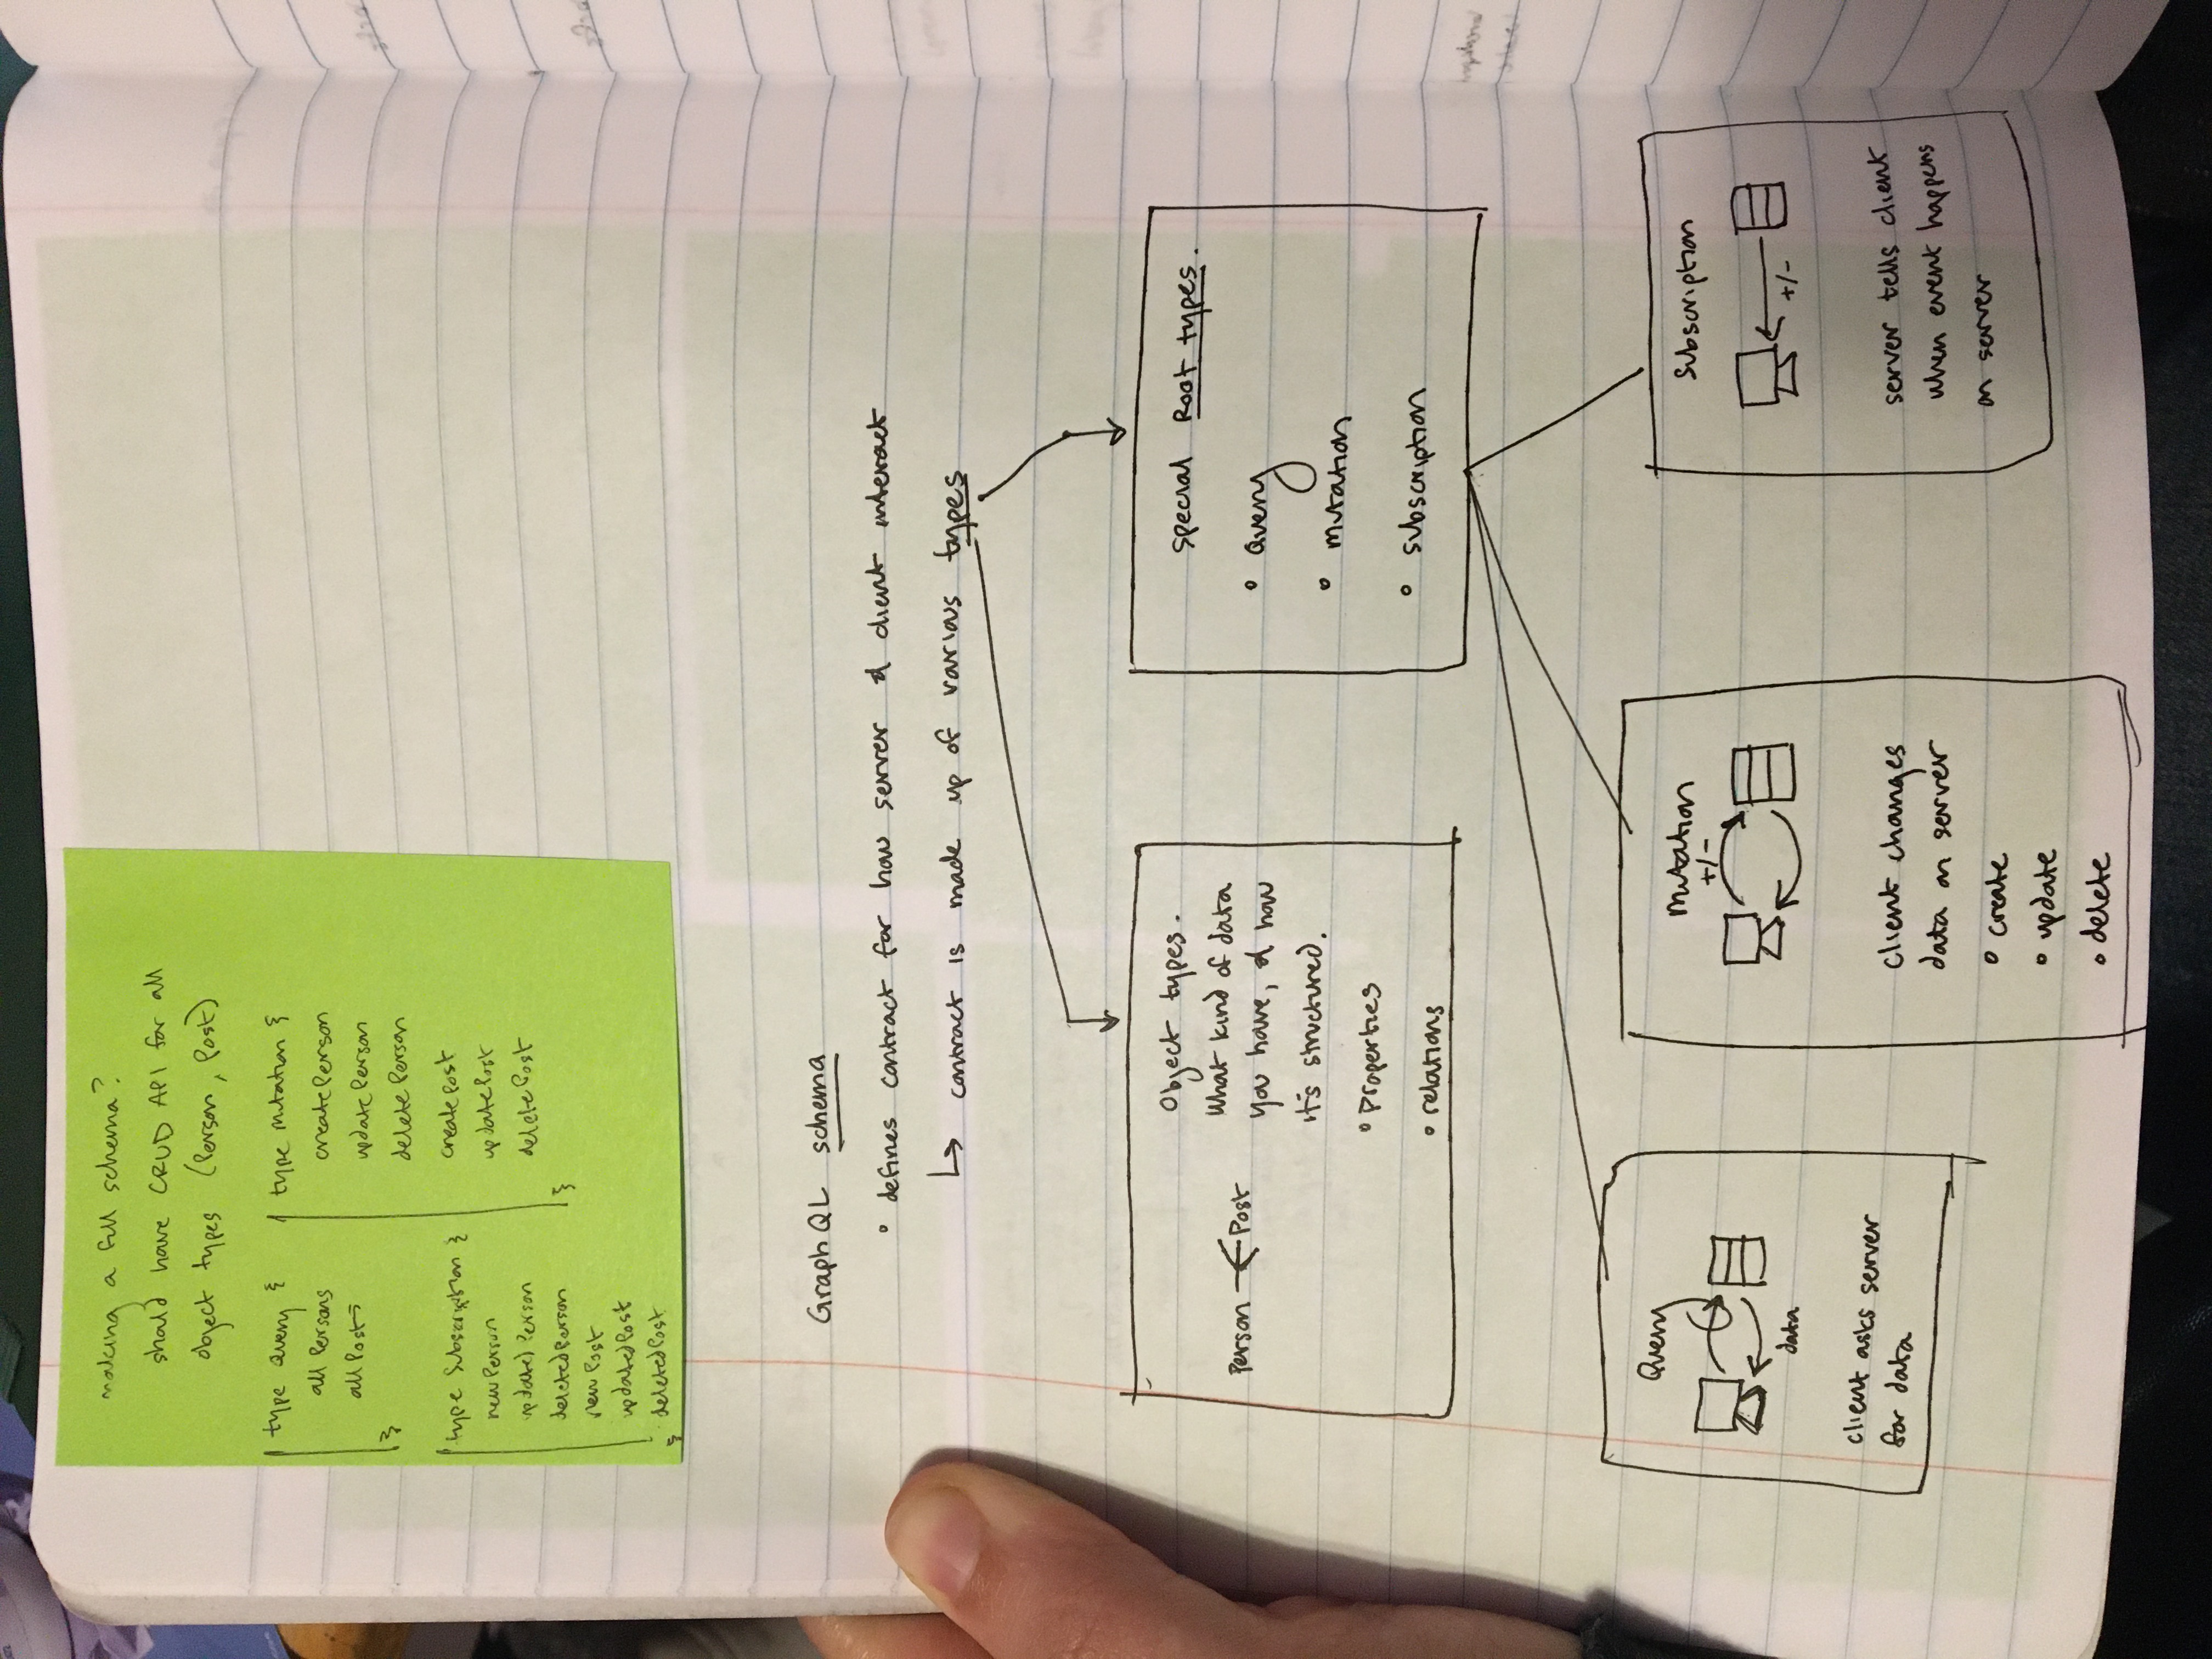 making a full schema?
should have CRUD API for all
object types (Person, Post)
type Query {
allPersons
allPosts
}
type Subscription {
newPerson
updatedPerson
deletedPerson
newPost
updatedPost
deletedPost
}
type Mutation {
createPerson
updatePerson
deletePerson
createPost
updatePost
deletePost
}
GraphQL schema
• defines contract for how server & client interact
↳ contract is made up of various types
Person Post
Object types.
What kind of data
you have, & how
it's structured.
• Properties
• relations
special Root types.
• Query
• Mutation
• Subscription
Query
data
client asks server
for data
Mutation
+/-
client changes
data on server
• create
• update
• delete
Subscription
+/-
server tells client
when event happens
on server